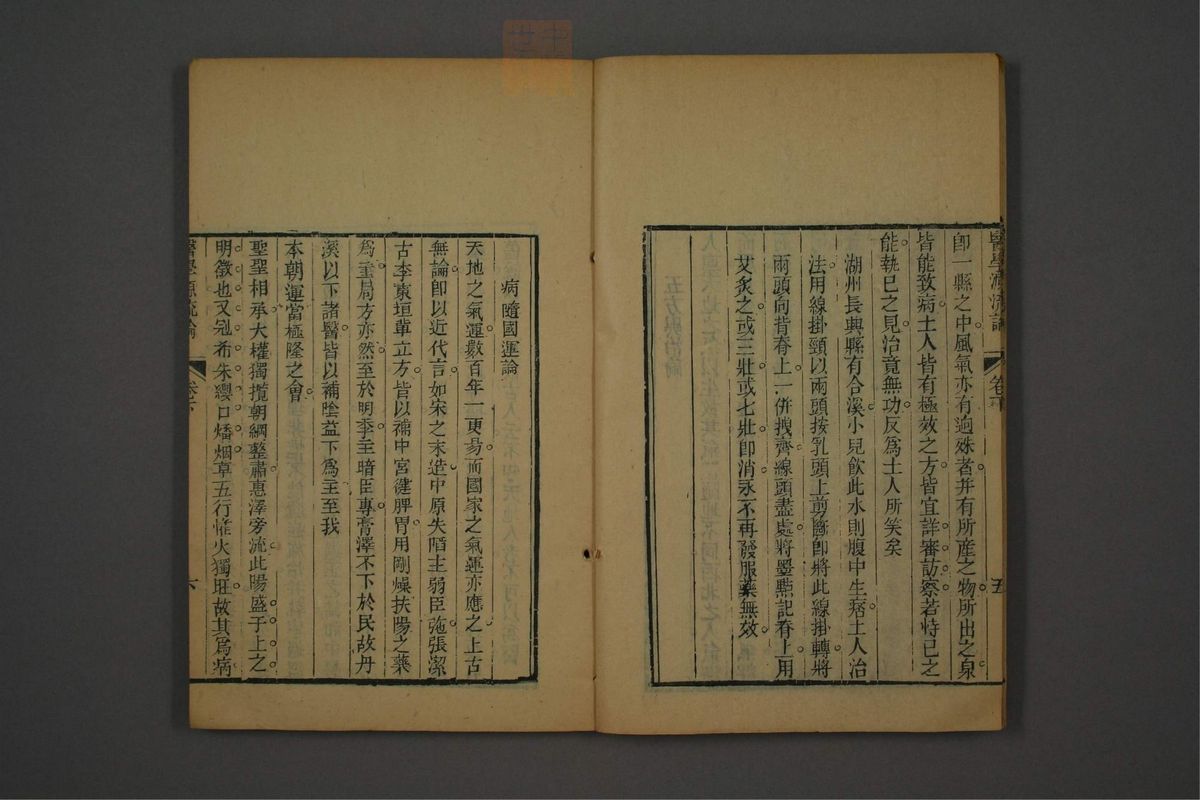 醫學源流論 卷下 五
卽一縣之中風氣亦有逈殊者并有所産之物所出之泉
皆能致病土人皆有極效之方皆宜詳審訪察若恃已之
能執已之見治竟無功反爲土人所笑矣
湖州長興縣有合溪小兒飲此水則腹中生痞土人治
法用線掛頸以兩頭按乳頭上剪斷卽將此線掛轉將
兩頭向背脊上一併拽齊線頭盡處將墨㸃記脊上用
艾炙之或三壯或七壯卽消永不再發服藥無效
病隨國運論
天地之氣運數百年一更易而國家之氣運亦應之上古
無論卽以近代言如宋之末造中原失陷主弱臣弛張潔
古李東垣輩立方皆以補中宮健脾胃用剛燥扶陽之藥
爲主局方亦然至於明季主暗臣專膏澤不下於民故丹
溪以下諸醫皆以補陰益下爲主至我
本朝運當極隆之會
聖聖相承大權獨攬朝綱整肅惠澤旁流此陽盛于上之
明徵也又冠希朱纓口燔烟草五行惟火獨旺故其爲病
醫學源流論 卷下 六